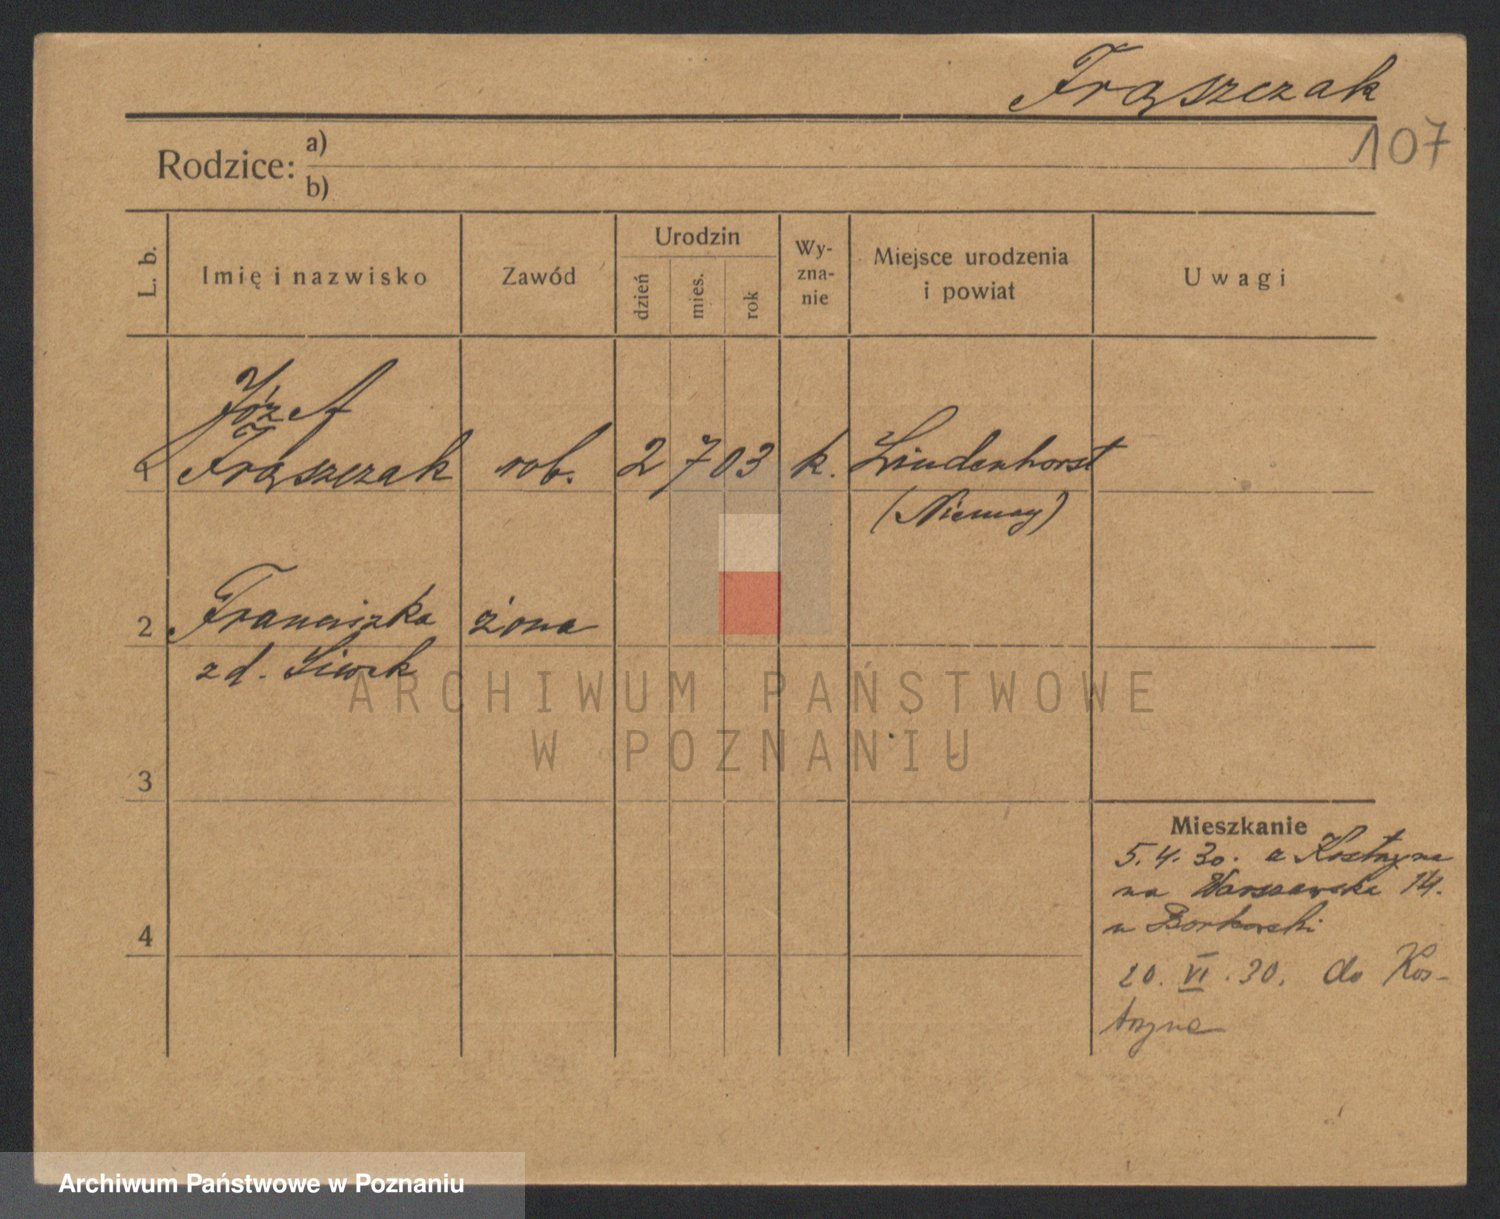 Frąszczak
107
Rodzice: a)
b)
L. b.
Imię i nazwisko
Zawód
Urodzin
dzień
mies.
rok
Wy-
zna-
nie
Miejsce urodzenia
i powiat
Uwagi
Józef
1 Frąszczak rob. 2 7 03 k. Lindenhorst
(Niemcy)
2 Franciszka żona
zd. Siwek
ARCHIWUM PAŃSTWOWE
W POZNANIU
3
Mieszkanie
5.4.30. z Kostrzyna
na Warszawska 14.
u Borkowski
4
20. VI. 30. do Kos-
trzyna
Archiwum Państwowe w Poznaniu